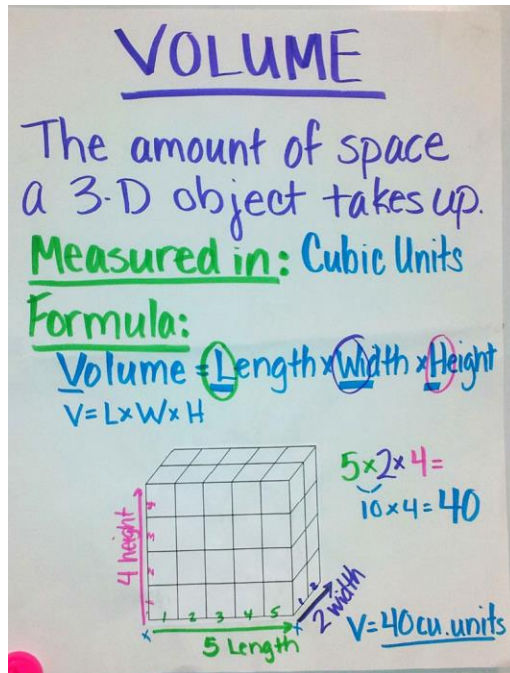 VOLUME
The amount of space
a 3-D object takes up.
Measured in: Cubic Units
Formula:
Volume = Length x Width x Height
V=LxWxH
5x2x4=
10x4=40
4 height
4
3
2
1
1 2 3 4 5
1 2
x
x
5 Length
2 width
V=40cu.units